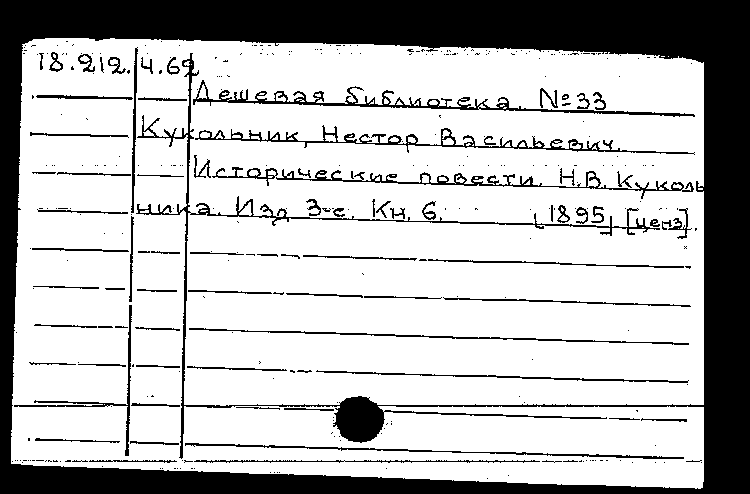 18.212.4.62
Дешевая библиотека. №33
Кукольник, Нестор Васильевич.
Исторические повести. Н.В. Куколь
ника. Изд 3-е. Кн. 6. [1895] [ценз].